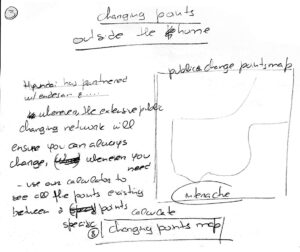 changing points
outside the home
Hyundai has partnered
w/ endesa x.....
whenever the extensive public
changing network will
ensure you can always
change, whenever you
need
- use our calculator to
see all the points existing
between 2 points
specific
calculate
changing points map
public change points map